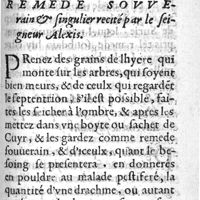 REMEDE SOVVE-
rain & singulier recité par le sei-
gneur Alexis.
PRenez des grains de lhyere qui
monte sur les arbres, qui soyent
bien meurs, & de ceulx qui regardẽt
le septentrion: s'il est possible, fai-
tes les seicher à l'ombre, & apres les
mettez dans vne boyte ou sachet de
Cuyr, & les gardez comme remede
souuerain, & d'ceulx, quant le be-
soing se presentera, en donnerés
en pouldre au malade pestiferé, la
quantité d'vne drachme, ou autant